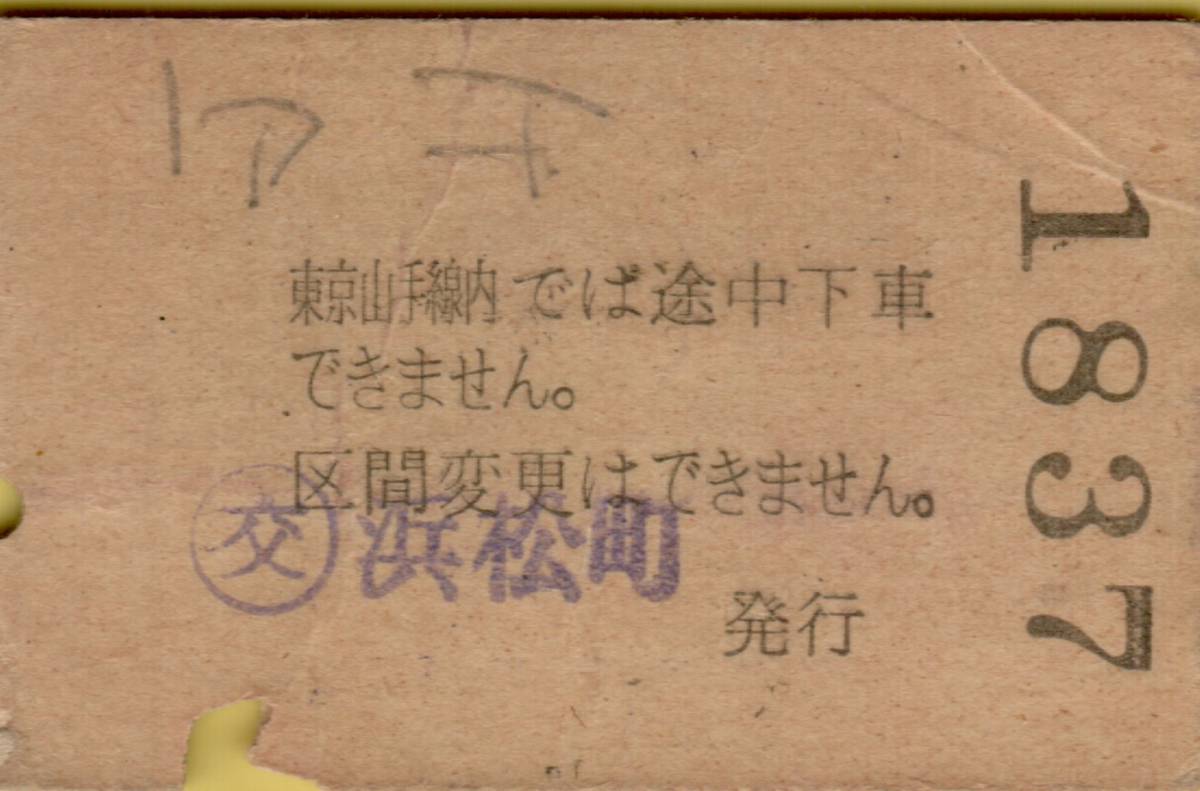 東京山手線内では途中下車
できません。
区間変更はできません。
交 浜松町
発行
1837